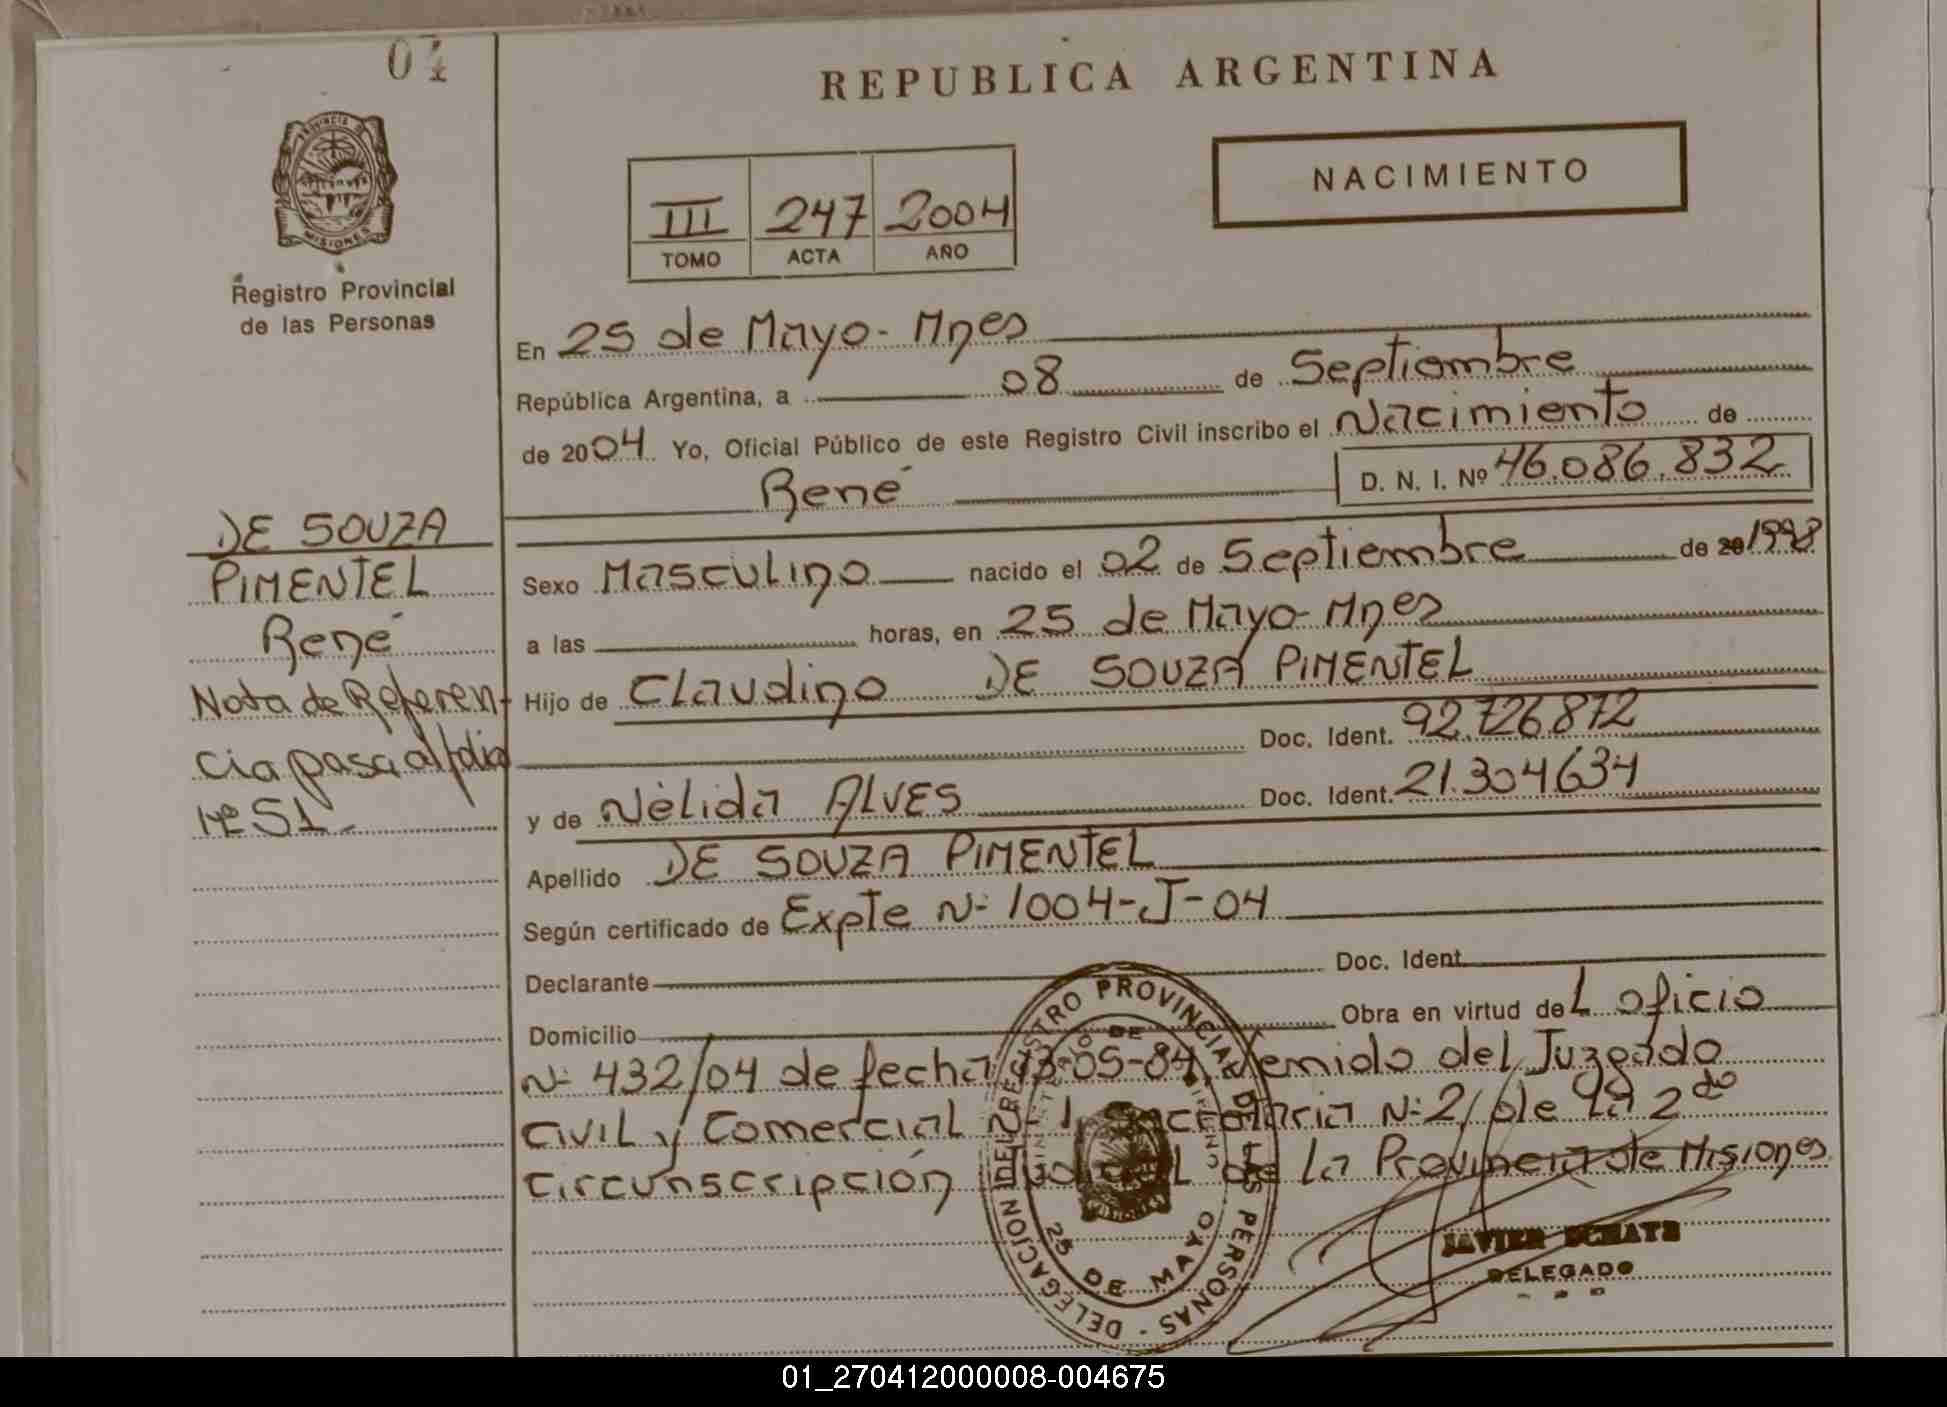 04
REPUBLICA ARGENTINA
NACIMIENTO
PROVINCIA DE
MISIONES
Registro Provincial
de las Personas
III 247 2004
TOMO ACTA AÑO
En 25 de Mayo - Mnes
República Argentina, a 08 de Septiembre
de 2004 Yo, Oficial Público de este Registro Civil inscribo el Nacimiento de
René D. N. I. Nº 46.086.832
DE SOUZA
PIMENTEL
René
Nota de Referen-
cia pasa al folio
Nº 51.-
Sexo Masculino nacido el 02 de Septiembre de 20 1998
a las horas, en 25 de Mayo - Mnes
Hijo de Claudino DE SOUZA PIMENTEL
Doc. Ident. 92.726.872
y de Nélida ALVES Doc. Ident. 21.304634
Apellido DE SOUZA PIMENTEL
Según certificado de Expte Nº 1004-J-04
Declarante Doc. Ident.
Domicilio Obra en virtud de L oficio
Nº 432/04 de fecha 13-05-84, venido del Juzgado
Civil y Comercial Nº 1, Secretaria Nº 2, de la 2da
Circunscripción Judicial de la Provincia de Misiones
DELEGACION DEL REGISTRO PROVINCIAL DE LAS PERSONAS
25 DE MAYO
JAVIER
DELEGADO
01_270412000008-004675